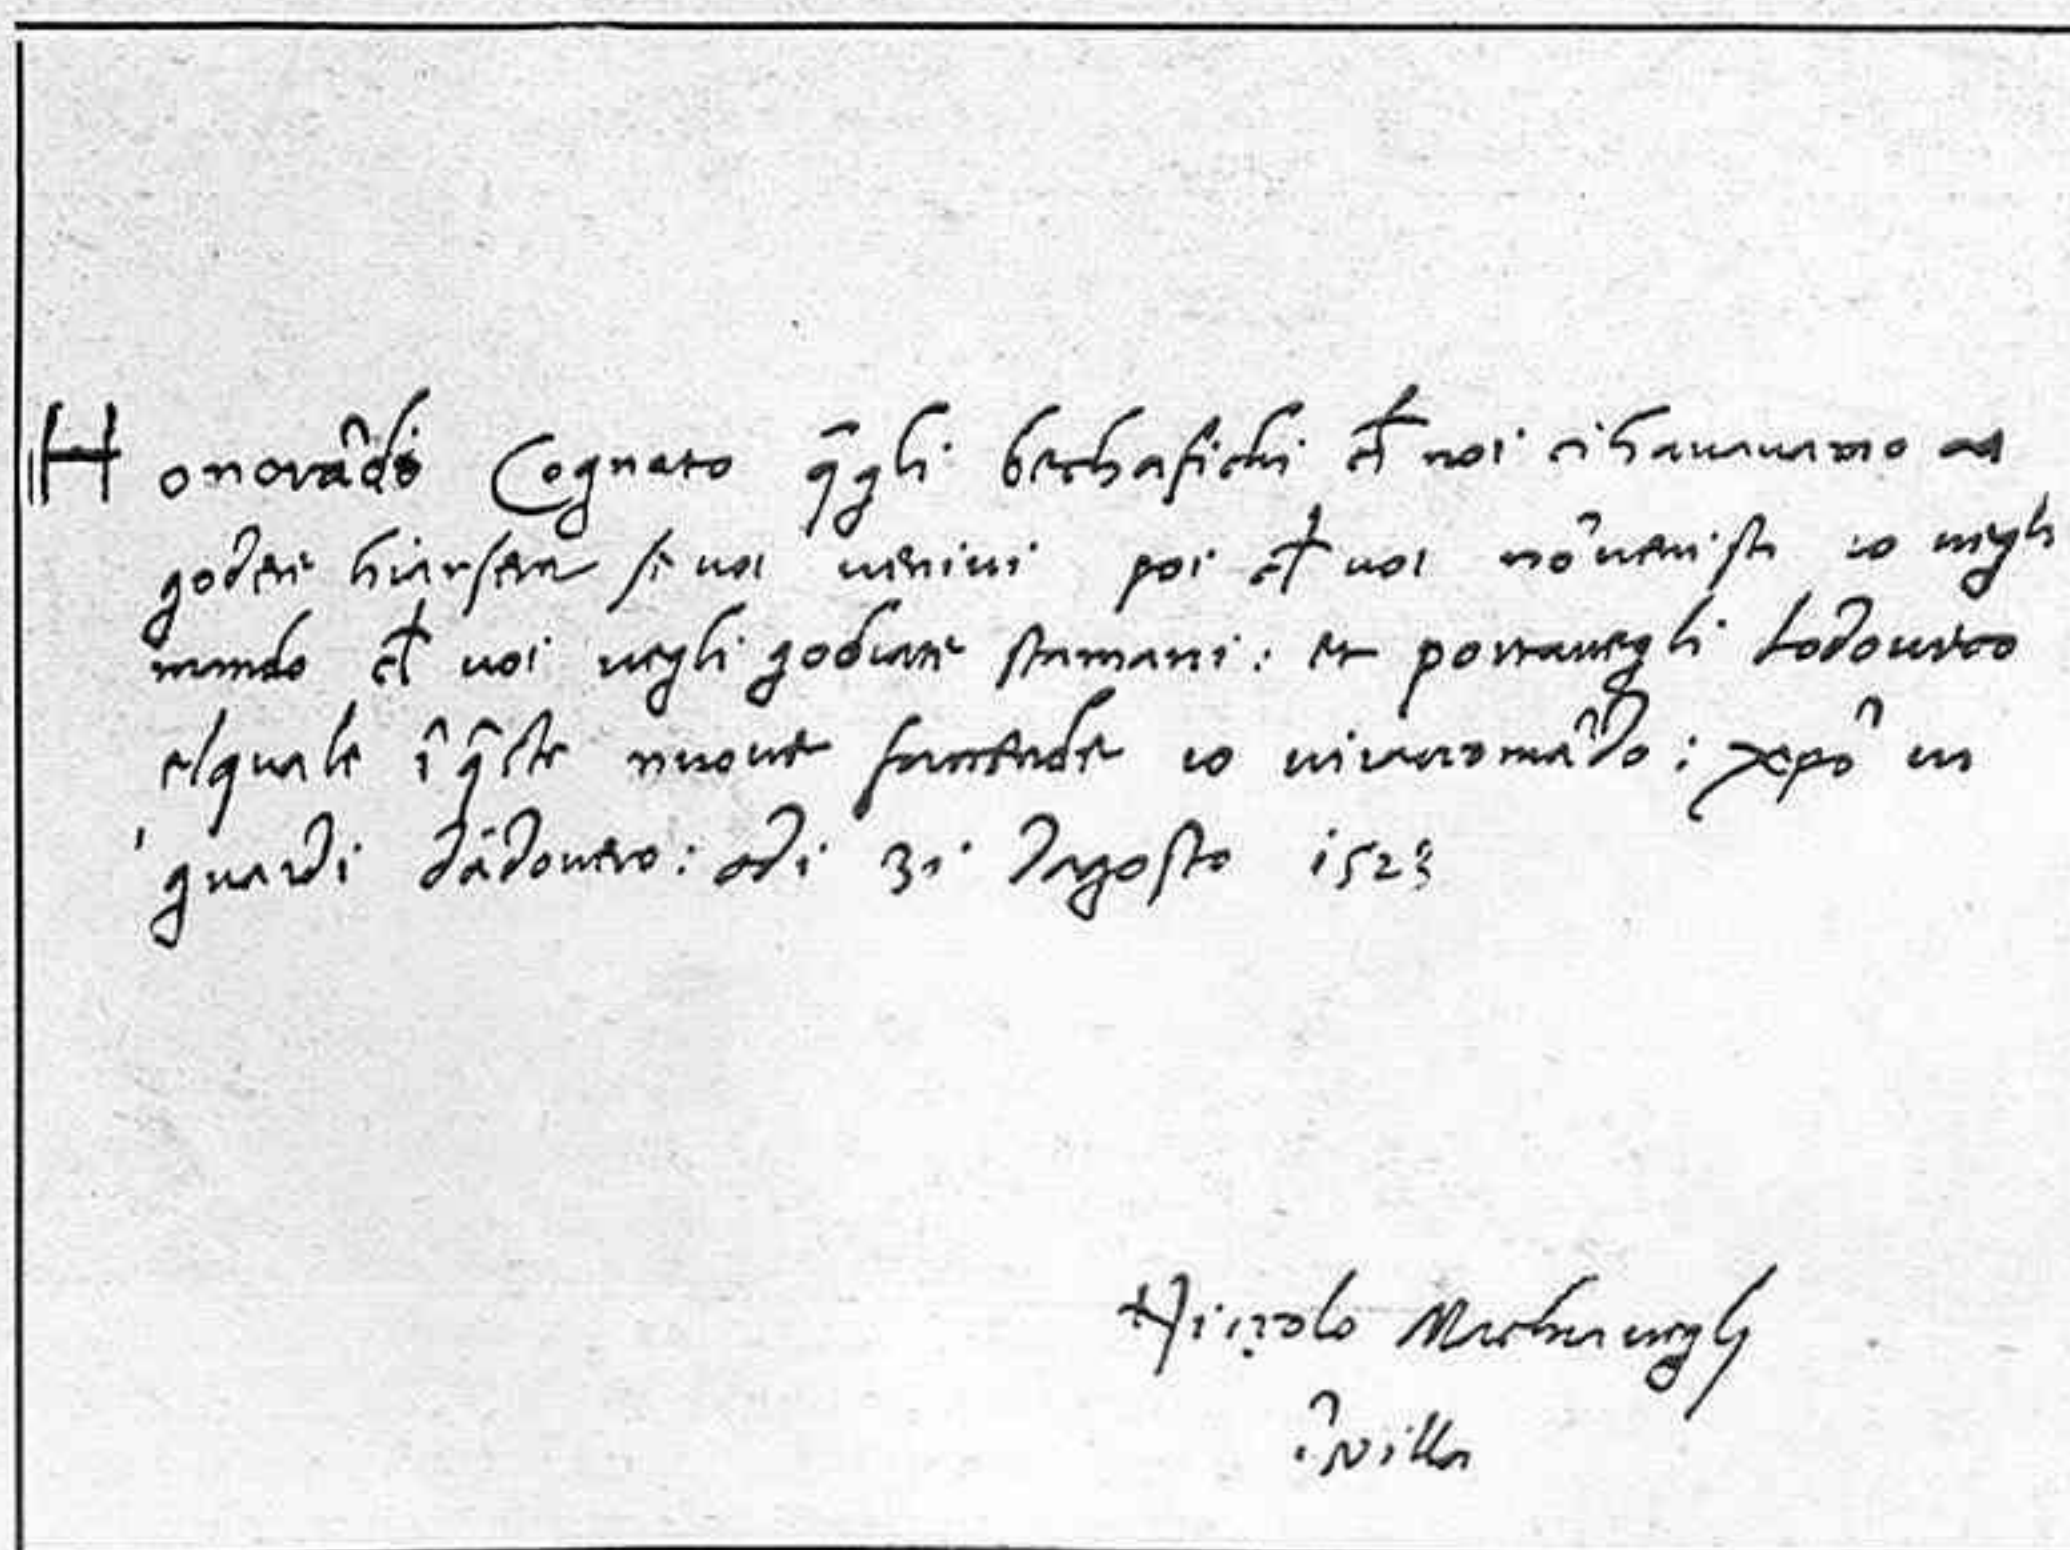 Honorãdo Cognato q̃gli bechafichi ch̃ noi cihavavamo ad
godere hiersera se voi venivi poi ch̃ voi nõ venisti io vegli
mando ch̃ voi vegli godiate stamani: et portavegli Lodovico
elquale ĩ q̃ste nuove faccende io vi racomãdo: xp̃o vi
guardi dadovero: adi 31 dagosto 1523
Niccolo Machiavegli
ĩ villa